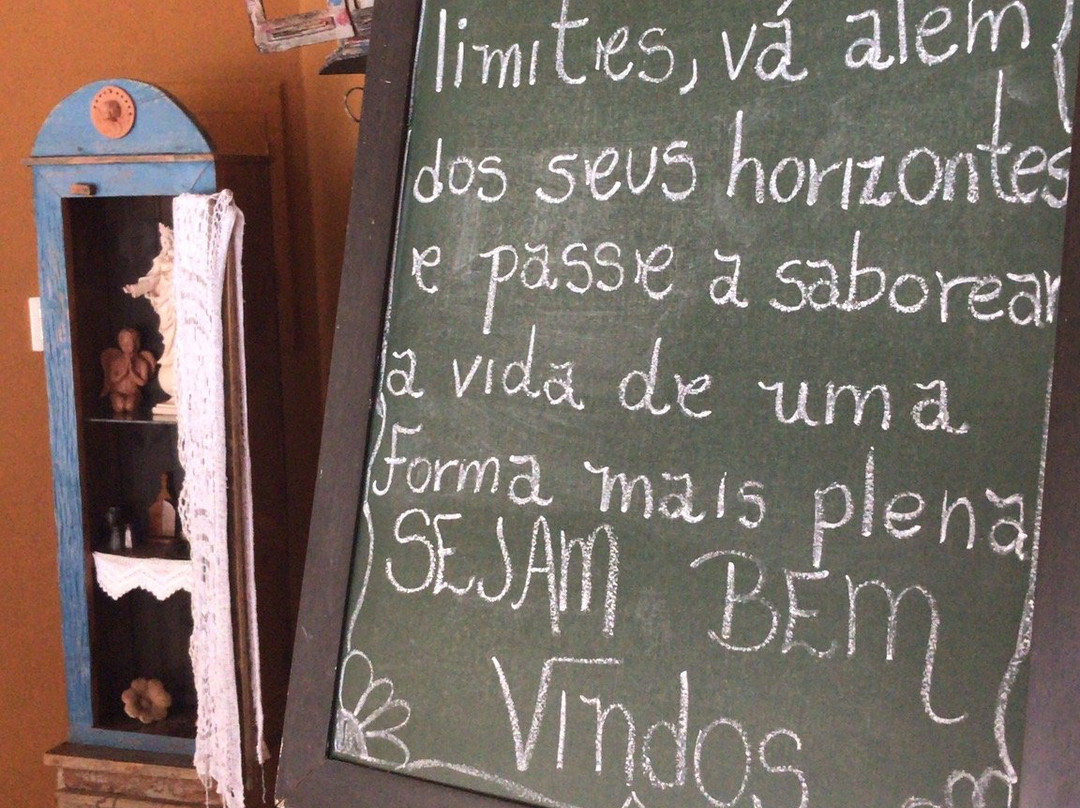 limites, vá além
dos seus horizontes
e passe a saborear
a vida de uma
forma mais plena
SEJAM BEM
Vindos